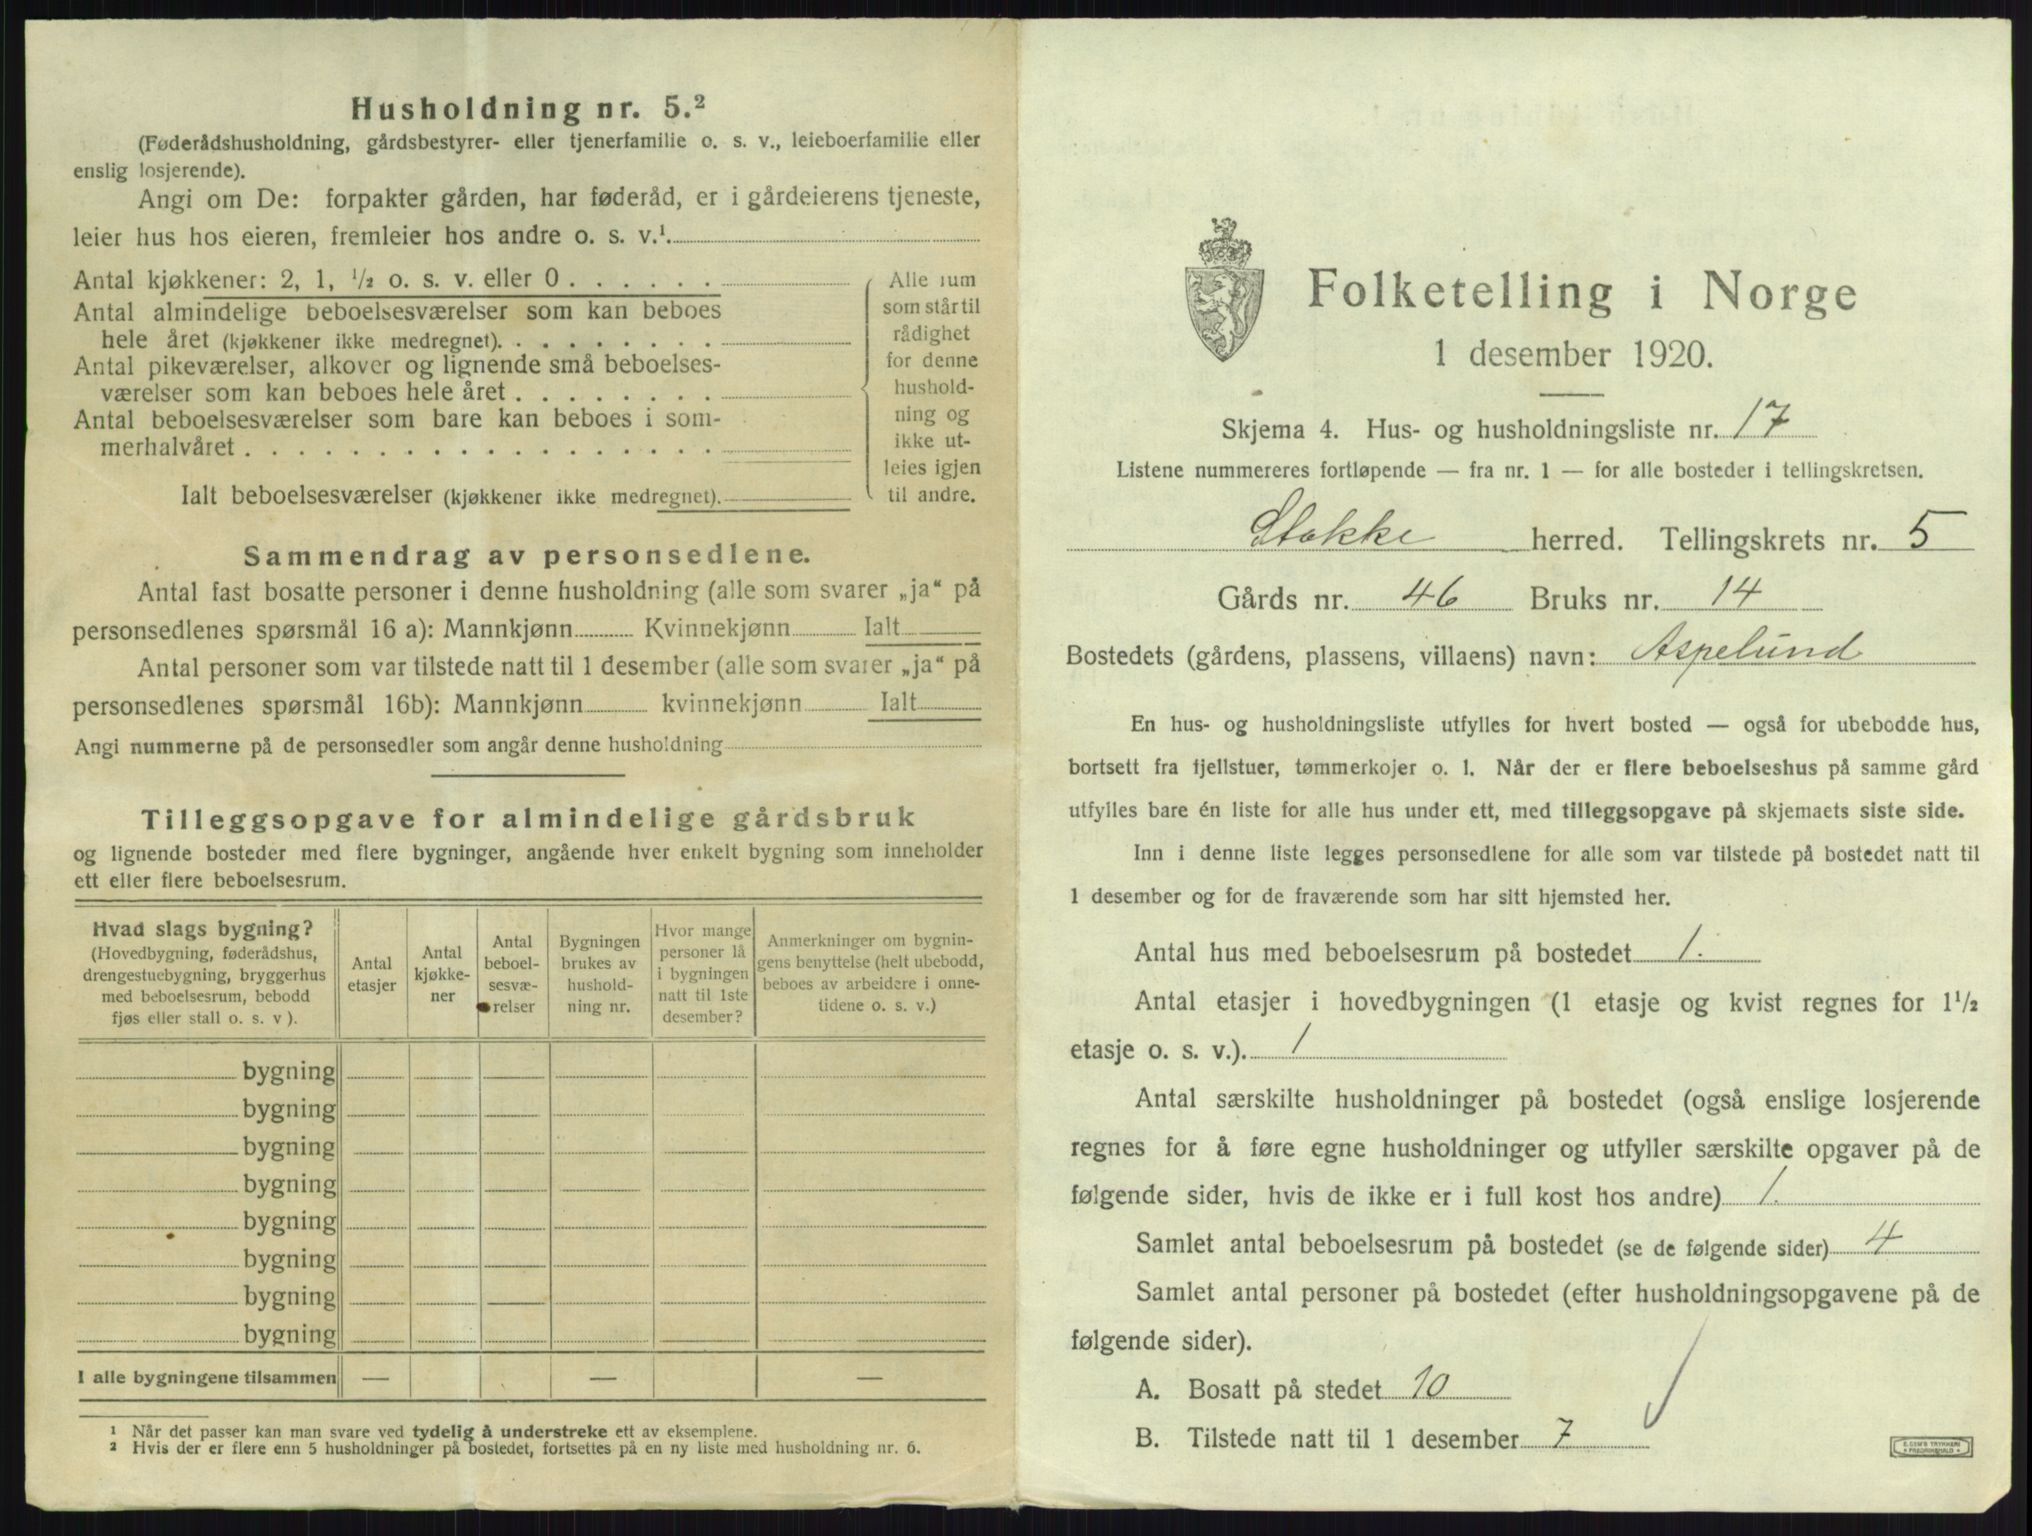 Husholdning nr. 5.²
(Føderådshusholdning, gårdsbestyrer- eller tjenerfamilie o. s. v., leieboerfamilie eller
enslig losjerende).
Angi om De: forpakter gården, har føderåd, er i gårdeierens tjeneste,
leier hus hos eieren, fremleier hos andre o. s. v.¹
Antal kjøkkener: 2, 1, ½ o. s. v. eller 0
Antal almindelige beboelsesværelser som kan beboes
hele året (kjøkkener ikke medregnet)
Antal pikeværelser, alkover og lignende små beboelses-
værelser som kan beboes hele året
Antal beboelsesværelser som bare kan beboes i som-
merhalvåret
Ialt beboelsesværelser (kjøkkener ikke medregnet)
Alle rum
som står til
rådighet
for denne
hushold-
ning og
ikke ut-
leies igjen
til andre.
Sammendrag av personsedlene.
Antal fast bosatte personer i denne husholdning (alle som svarer „ja“ på
personsedlenes spørsmål 16 a): Mannkjønn Kvinnekjønn Ialt
Antal personer som var tilstede natt til 1 desember (alle som svarer „ja“ på
personsedlenes spørsmål 16b): Mannkjønn kvinnekjønn Ialt
Angi nummerne på de personsedler som angår denne husholdning
Tilleggsopgave for almindelige gårdsbruk
og lignende bosteder med flere bygninger, angående hver enkelt bygning som inneholder
ett eller flere beboelsesrum.
Hvad slags bygning?
(Hovedbygning, føderådshus,
drengestuebygning, bryggerhus
med beboelsesrum, bebodd
fjøs eller stall o. s. v ).
Antal
etasjer
Antal
kjøkke-
ner
Antal
beboel-
sesvæ-
relser
Bygningen
brukes av
hushold-
ning nr.
Hvor mange
personer lå
i bygningen
natt til 1ste
desember?
Anmerkninger om bygnin-
gens benyttelse (helt ubebodd,
beboes av arbeidere i onne-
tidene o. s. v.)
bygning
bygning
bygning
bygning
bygning
bygning
bygning
bygning
I alle bygningene tilsammen — — —
¹ Når det passer kan man svare ved tydelig å understreke ett av eksemplene.
² Hvis der er flere enn 5 husholdninger på bostedet, fortsettes på en ny liste med husholdning nr. 6.
Folketelling i Norge
1 desember 1920.
Skjema 4. Hus- og husholdningsliste nr. 17
Listene nummereres fortløpende — fra nr. 1 — for alle bosteder i tellingskretsen.
Stokke herred. Tellingskrets nr. 5
Gårds nr. 46 Bruks nr. 14
Bostedets (gårdens, plassens, villaens) navn: Aspelund
En hus- og husholdningsliste utfylles for hvert bosted — også for ubebodde hus,
bortsett fra fjellstuer, tømmerkojer o. l. Når der er flere beboelseshus på samme gård
utfylles bare én liste for alle hus under ett, med tilleggsopgave på skjemaets siste side.
Inn i denne liste legges personsedlene for alle som var tilstede på bostedet natt til
1 desember og for de fraværende som har sitt hjemsted her.
Antal hus med beboelsesrum på bostedet 1.
Antal etasjer i hovedbygningen (1 etasje og kvist regnes for 1½
etasje o. s. v.). 1
Antal særskilte husholdninger på bostedet (også enslige losjerende
regnes for å føre egne husholdninger og utfyller særskilte opgaver på de
følgende sider, hvis de ikke er i full kost hos andre) 1.
Samlet antal beboelsesrum på bostedet (se de følgende sider) 4
Samlet antal personer på bostedet (efter husholdningsopgavene på de
følgende sider).
A. Bosatt på stedet 10
B. Tilstede natt til 1 desember 7